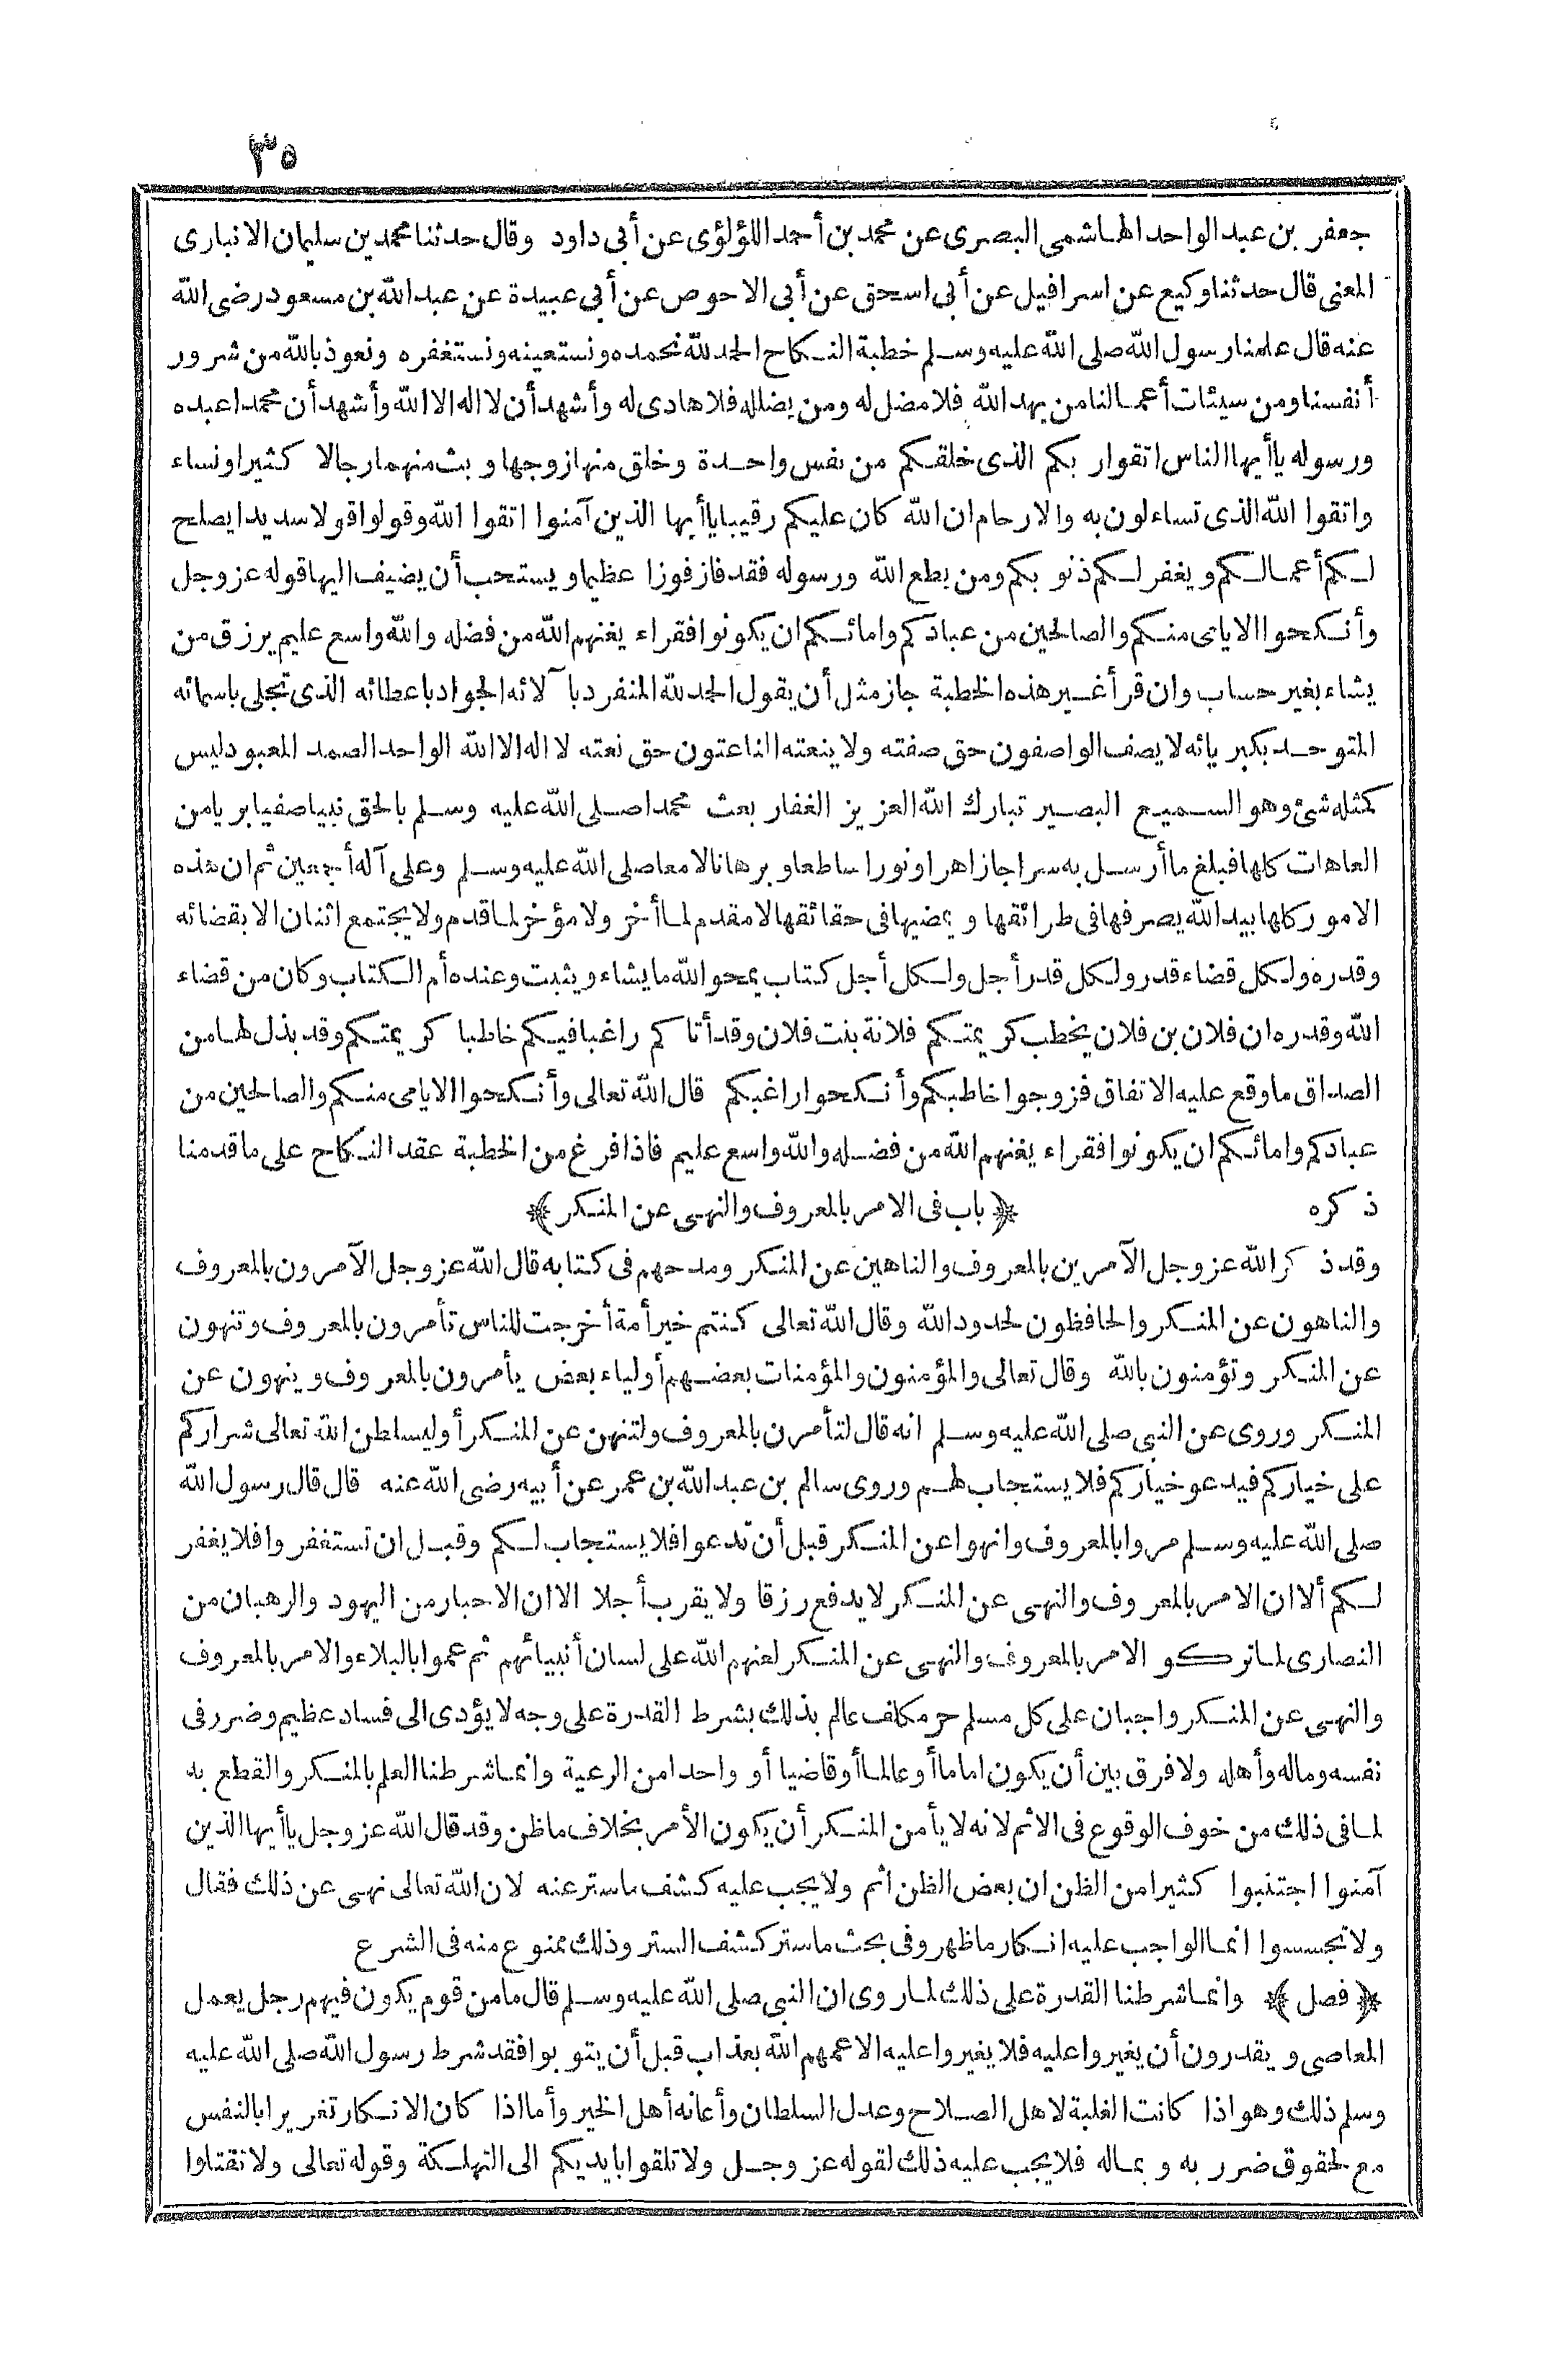 ٣٥
جعفر بن عبد الواحد الهاشمى البصرى عن محمد بن أحمد اللؤلؤى عن أبى داود وقال حدثنا محمد بن سليمان الانبارى
المعنى قال حدثنا وكيع عن اسرافيل عن أبى اسحق عن أبى الاحوص عن أبى عبيدة عن عبد الله بن مسعود رضى الله
عنه قال علمنا رسول الله صلى الله عليه وسلم خطبة النكاح الحمد لله نحمده ونستعينه ونستغفره ونعوذ بالله من شرور
أنفسنا ومن سيئات أعمالنا من يهد الله فلا مضل له ومن يضلله فلا هادى له وأشهد أن لا اله الا الله وأشهد أن محمدا عبده
ورسوله يا أيها الناس اتقوا ربكم الذى خلقكم من نفس واحدة وخلق منها زوجها وبث منهما رجالا كثيرا ونساء
واتقوا الله الذى تساءلون به والارحام ان الله كان عليكم رقيبا يا أيها الذين آمنوا اتقوا الله وقولوا قولا سديدا يصلح
لكم أعمالكم ويغفر لكم ذنوبكم ومن يطع الله ورسوله فقد فاز فوزا عظيما ويستحب أن يضيف اليها قوله عز وجل
وأنكحوا الايامى منكم والصالحين من عبادكم وامائكم ان يكونوا فقراء يغنهم الله من فضله والله واسع عليم يرزق من
يشاء بغير حساب وان قرأ غير هذه الخطبة جاز مثل أن يقول الحمد لله المنفرد بآلائه الجواد باعطائه الذى تجلى باسمائه
المتوحد بكبريائه لا يصف الواصفون حق صفته ولا ينعته الناعتون حق نعته لا اله الا الله الواحد الصمد المعبود ليس
كمثله شئ وهو السميع البصير تبارك الله العزيز الغفار بعث محمدا صلى الله عليه وسلم بالحق نبيا صفيا بريا من
العاهات كلها فبلغ ما أرسل به سراجا زاهرا ونورا ساطعا وبرهانا لامعا صلى الله عليه وسلم وعلى آله أجمعين ثم ان هذه
الامور كلها بيد الله يصرفها فى طرائقها ويمضيها فى حقائقها لا مقدم لما أخر ولا مؤخر لما قدم ولا يجتمع اثنان الا بقضائه
وقدره ولكل قضاء قدر ولكل قدر أجل ولكل أجل كتاب يمحو الله ما يشاء ويثبت وعنده أم الكتاب وكان من قضاء
الله وقدره ان فلان بن فلان يخطب كريمتكم فلانة بنت فلان وقد أتاكم راغبا فيكم خاطبا كريمتكم وقد بذل لها من
الصداق ما وقع عليه الاتفاق فزوجوا خاطبكم وأنكحوا راغبكم قال الله تعالى وأنكحوا الايامى منكم والصالحين من
عبادكم وامائكم ان يكونوا فقراء يغنهم الله من فضله والله واسع عليم فاذا فرغ من الخطبة عقد النكاح على ما قدمنا
ذكره ﴿ باب فى الامر بالمعروف والنهى عن المنكر ﴾
وقد ذكر الله عز وجل الآمرين بالمعروف والناهين عن المنكر ومدحهم فى كتابه قال الله عز وجل الآمرون بالمعروف
والناهون عن المنكر والحافظون لحدود الله وقال الله تعالى كنتم خير أمة أخرجت للناس تأمرون بالمعروف وتنهون
عن المنكر وتؤمنون بالله وقال تعالى والمؤمنون والمؤمنات بعضهم أولياء بعض يأمرون بالمعروف وينهون عن
المنكر وروى عن النبى صلى الله عليه وسلم انه قال لتأمرن بالمعروف ولتنهن عن المنكر أو ليسلطن الله تعالى شراركم
على خياركم فيدعو خياركم فلا يستجاب لهم وروى سالم بن عبد الله بن عمر عن أبيه رضى الله عنه قال قال رسول الله
صلى الله عليه وسلم مروا بالمعروف وانهوا عن المنكر قبل أن تدعوا فلا يستجاب لكم وقبل ان تستغفروا فلا يغفر
لكم ألا ان الامر بالمعروف والنهى عن المنكر لا يدفع رزقا ولا يقرب أجلا الا ان الاحبار من اليهود والرهبان من
النصارى لما تركو الامر بالمعروف والنهى عن المنكر لعنهم الله على لسان أنبيائهم ثم عموا بالبلاء والامر بالمعروف
والنهى عن المنكر واجبان على كل مسلم حر مكلف عالم بذلك بشرط القدرة على وجه لا يؤدى الى فساد عظيم وضرر فى
نفسه وماله وأهله ولا فرق بين أن يكون اماما أو عالما أو قاضيا أو واحدا من الرعية وانما شرطنا العلم بالمنكر والقطع به
لما فى ذلك من خوف الوقوع فى الاثم لانه لا يأمن المنكر أن يكون الأمر بخلاف ما ظن وقد قال الله عز وجل يا أيها الذين
آمنوا اجتنبوا كثيرا من الظن ان بعض الظن اثم ولا يجب عليه كشف ما ستر عنه لان الله تعالى نهى عن ذلك فقال
ولا تجسسوا انما الواجب عليه انكار ما ظهر وفى بحث ما ستر كشف الستر وذلك ممنوع منه فى الشرع
﴿ فصل ﴾ وانما شرطنا القدرة على ذلك لما روى ان النبى صلى الله عليه وسلم قال ما من قوم يكون فيهم رجل يعمل
المعاصى ويقدرون أن يغيروا عليه فلا يغيروا عليه الا عمهم الله بعذاب قبل أن يتوبوا فقد شرط رسول الله صلى الله عليه
وسلم ذلك وهو اذا كانت الغلبة لاهل الصلاح وعدل السلطان وأعانه أهل الخير وأما اذا كان الانكار تغريرا بالنفس
مع لحقوق ضرر به وبماله فلا يجب عليه ذلك لقوله عز وجل ولا تلقوا بايديكم الى التهلكة وقوله تعالى ولا تقتلوا